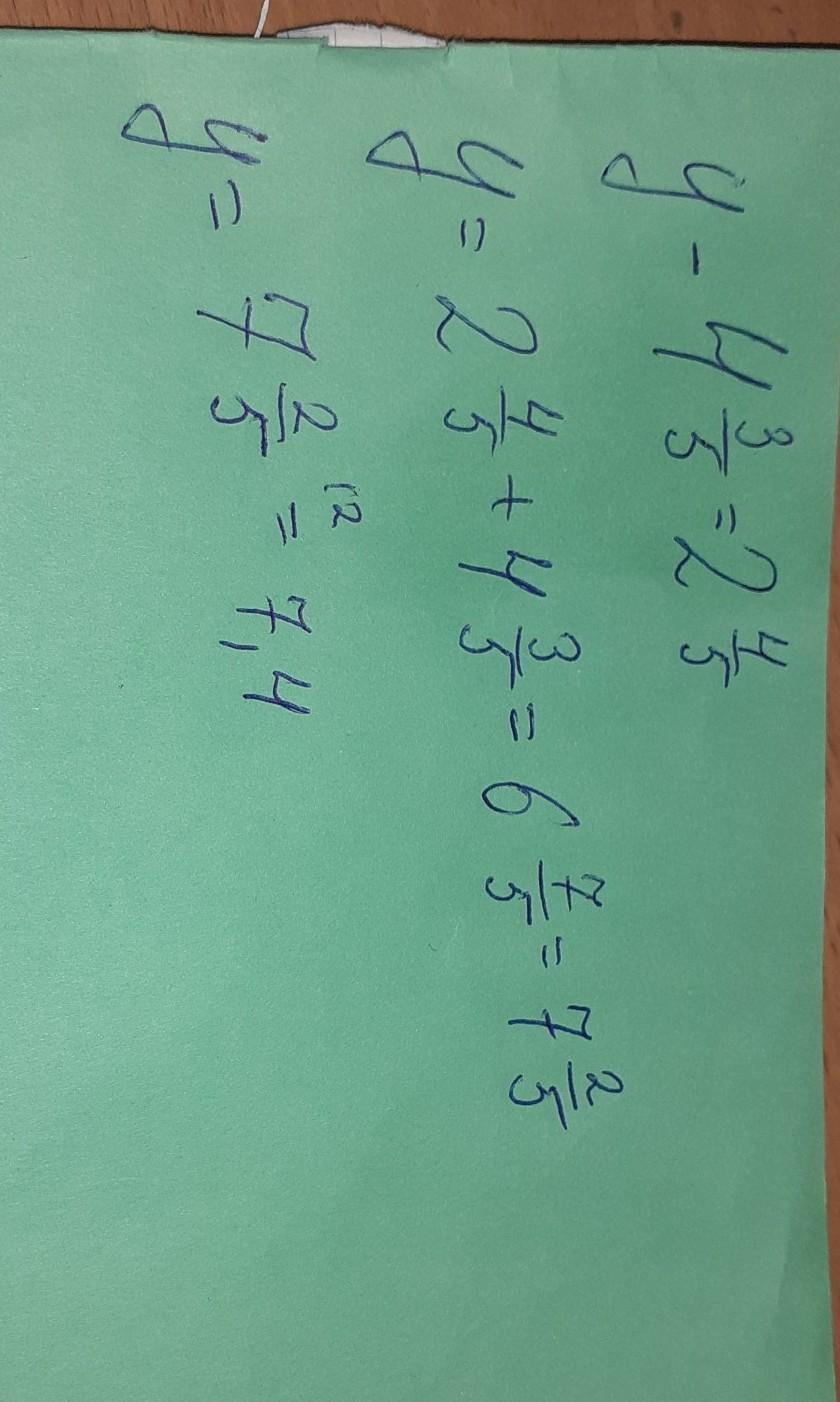 y - 4 3/5 = 2 4/5
y = 2 4/5 + 4 3/5 = 6 7/5 = 7 2/5
y = 7 2/5 ^(2 = 7,4